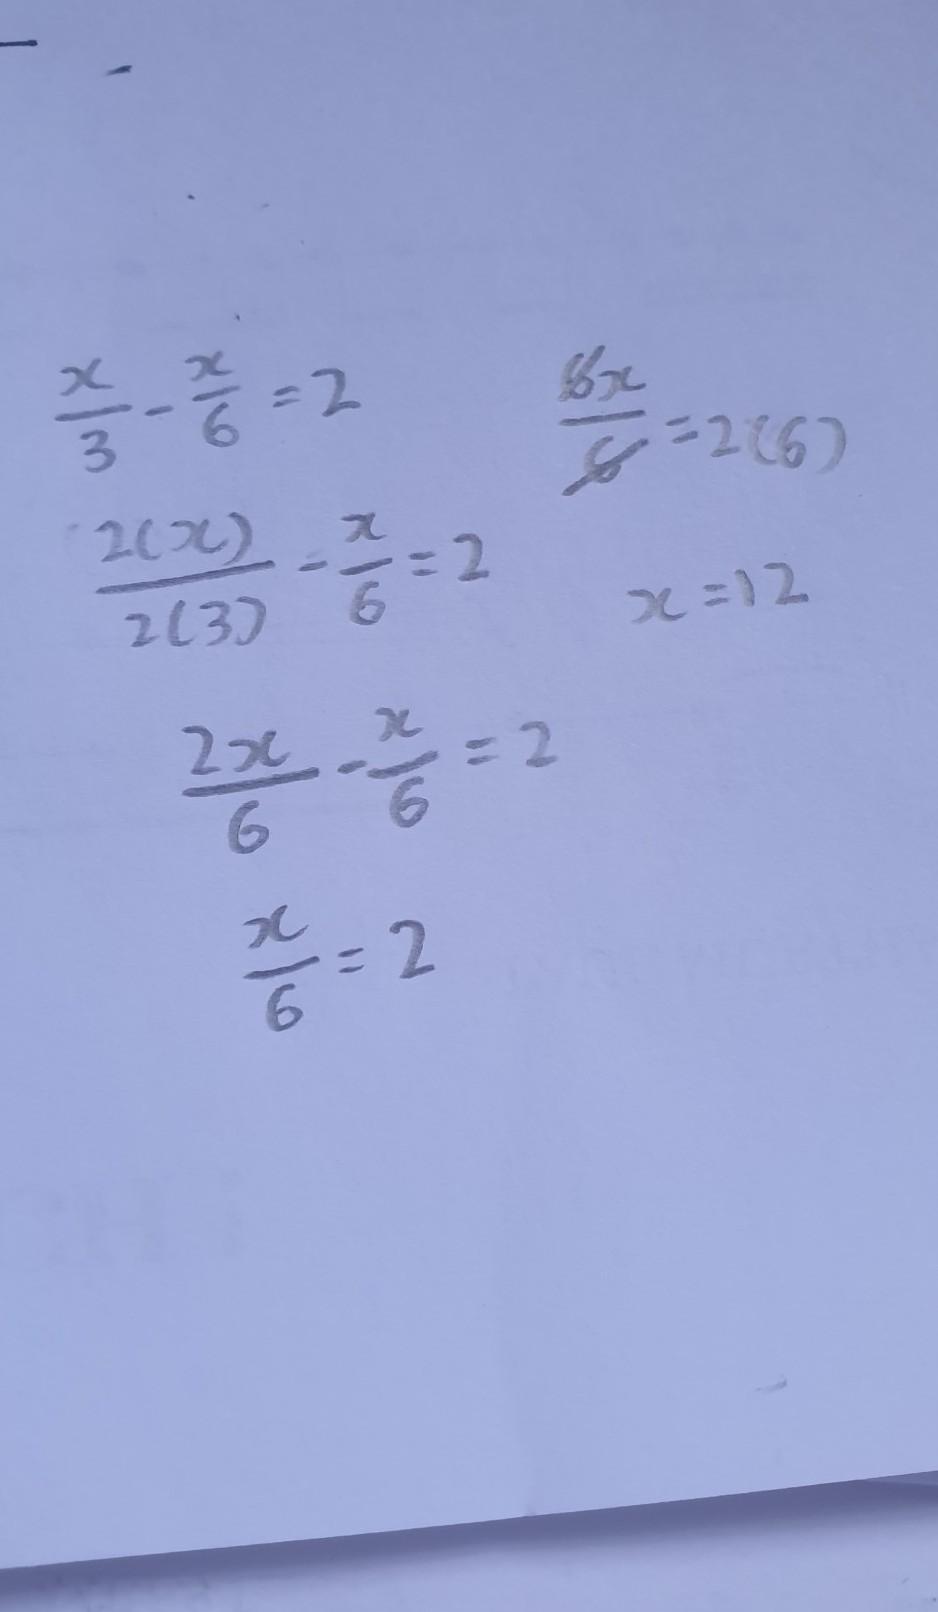 x/3 - x/6 = 2
2(x)/2(3) - x/6 = 2
2x/6 - x/6 = 2
x/6 = 2
6x/6 = 2(6)
x = 12